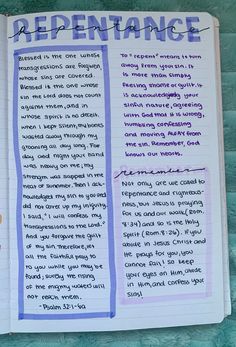 REPENTANCE
Repentance
Blessed is the one whose
transgressions are forgiven,
whose sins are covered.
Blessed is the one whose
sin the Lord does not count
against them, and in
whose spirit is no deceit.
When I kept silent, my bones
wasted away through my
groaning all day long. For
day and night your hand
was heavy on me; my
strength was sapped in the
heat of summer. Then I ack-
nowledged my sin to you and
did not cover up my iniquity.
I said, "I will confess my
transgressions to the Lord."
And you forgave the guilt
of my sin. Therefore, let
all the faithful pray to
to you while you may be
found; surely the rising
of the mighty waters will
not reach them.
- Psalm 32:1-6a
To "repent" means to turn
away from your sin. It
is more than simply
feeling shame or guilt. It
is acknowledging your
sinful nature, agreeing
with God that is is wrong,
humbling confessing
and moving AWAY from
the sin. Remember, God
knows our hearts.
remember
Not only are we called to
repentance and righteous-
ness, but Jesus is praying
for us and our walk (Rom.
8:34) and so is the Holy
Spirit (Rom. 8:26). If you
abide in Jesus Christ and
He prays for you, you
cannot fail! So keep
your eyes on Him, abide
in Him, and confess your
sins!